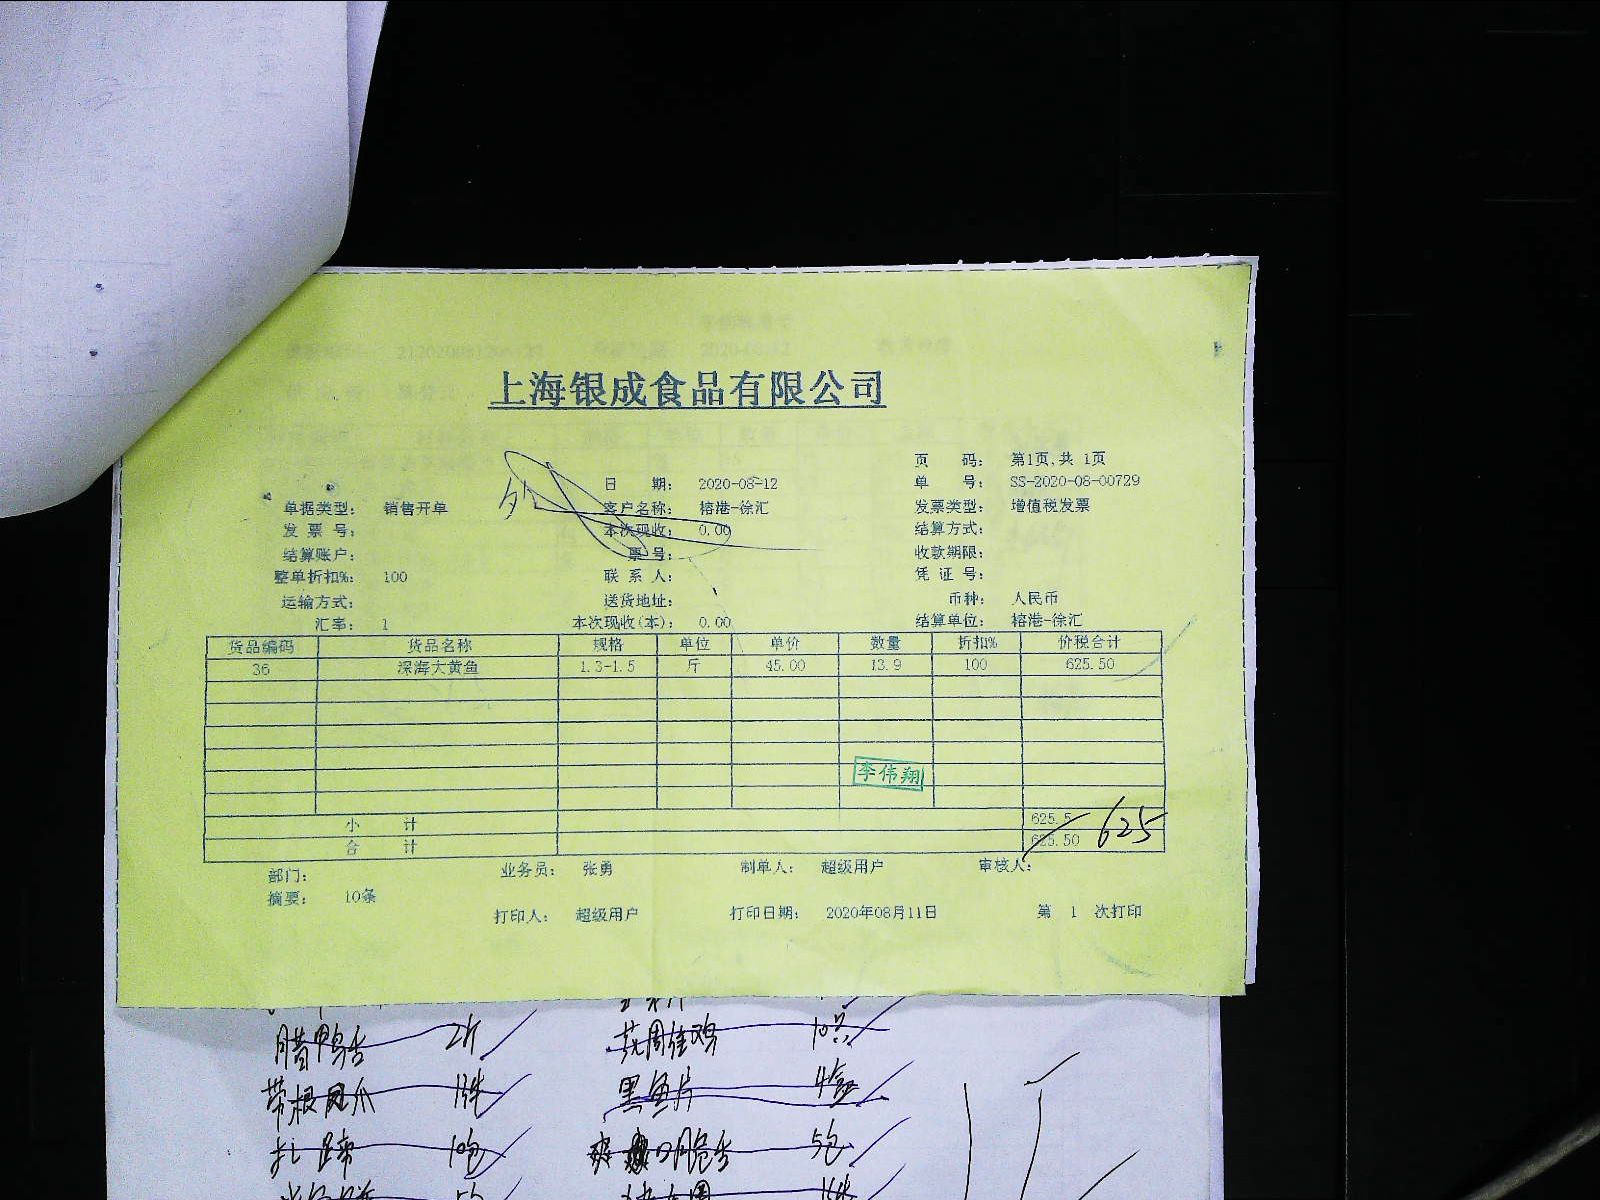 上海银成食品有限公司
页 码: 第1页,共 1页
日 期: 2020-08-12 单 号: SS-2020-08-00729
单据类型: 销售开单 客户名称: 榕港-徐汇 发票类型: 增值税发票
发 票 号: 本次现收: 0.00 结算方式:
结算账户: 票 号: 收款期限:
整单折扣%: 100 联 系 人: 凭 证 号:
运输方式: 送货地址: 币种: 人民币
汇率: 1 本次现收(本): 0.00 结算单位: 榕港-徐汇
货品编码 货品名称 规格 单位 单价 数量 折扣% 价税合计
36 深海大黄鱼 1.3-1.5 斤 45.00 13.9 100 625.50
李伟翔
小 计 625.5
合 计 625.50 625
部门: 业务员: 张勇 制单人: 超级用户 审核人:
摘要: 10条
打印人: 超级用户 打印日期: 2020年08月11日 第 1 次打印
腊鸭舌 2斤
带根凤爪
黑鱼片 4盒
扎蹄 10包 5包